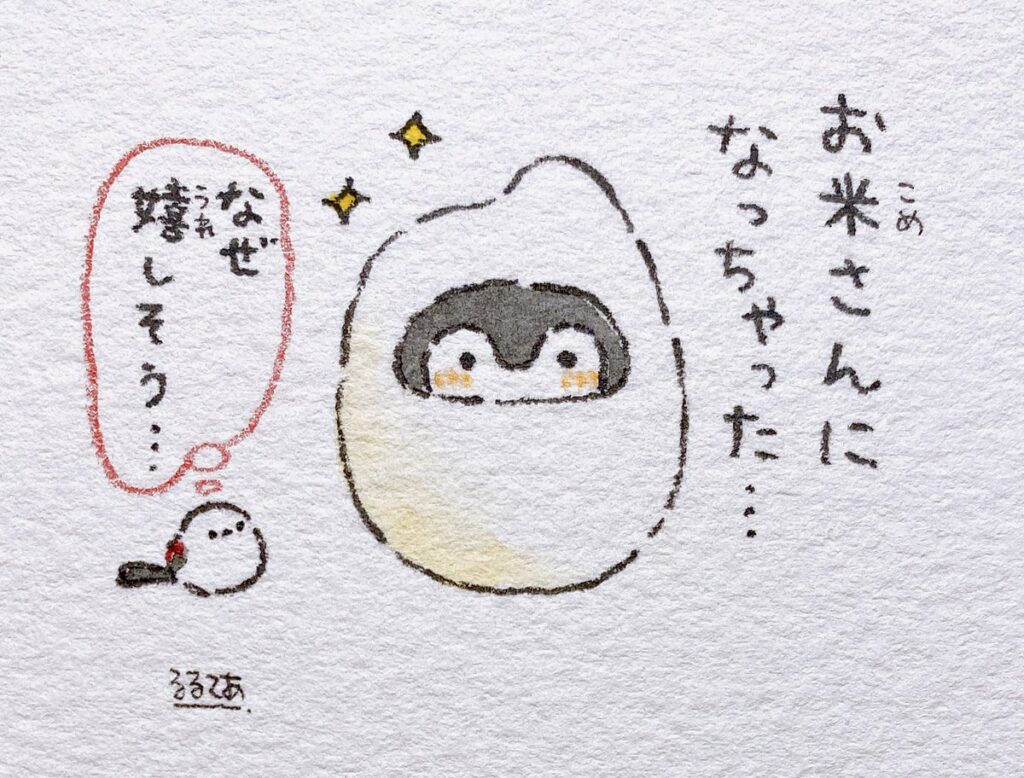 お米さんに
こめ
なっちゃった…
なぜ
嬉しそう…
うれ
るるてあ